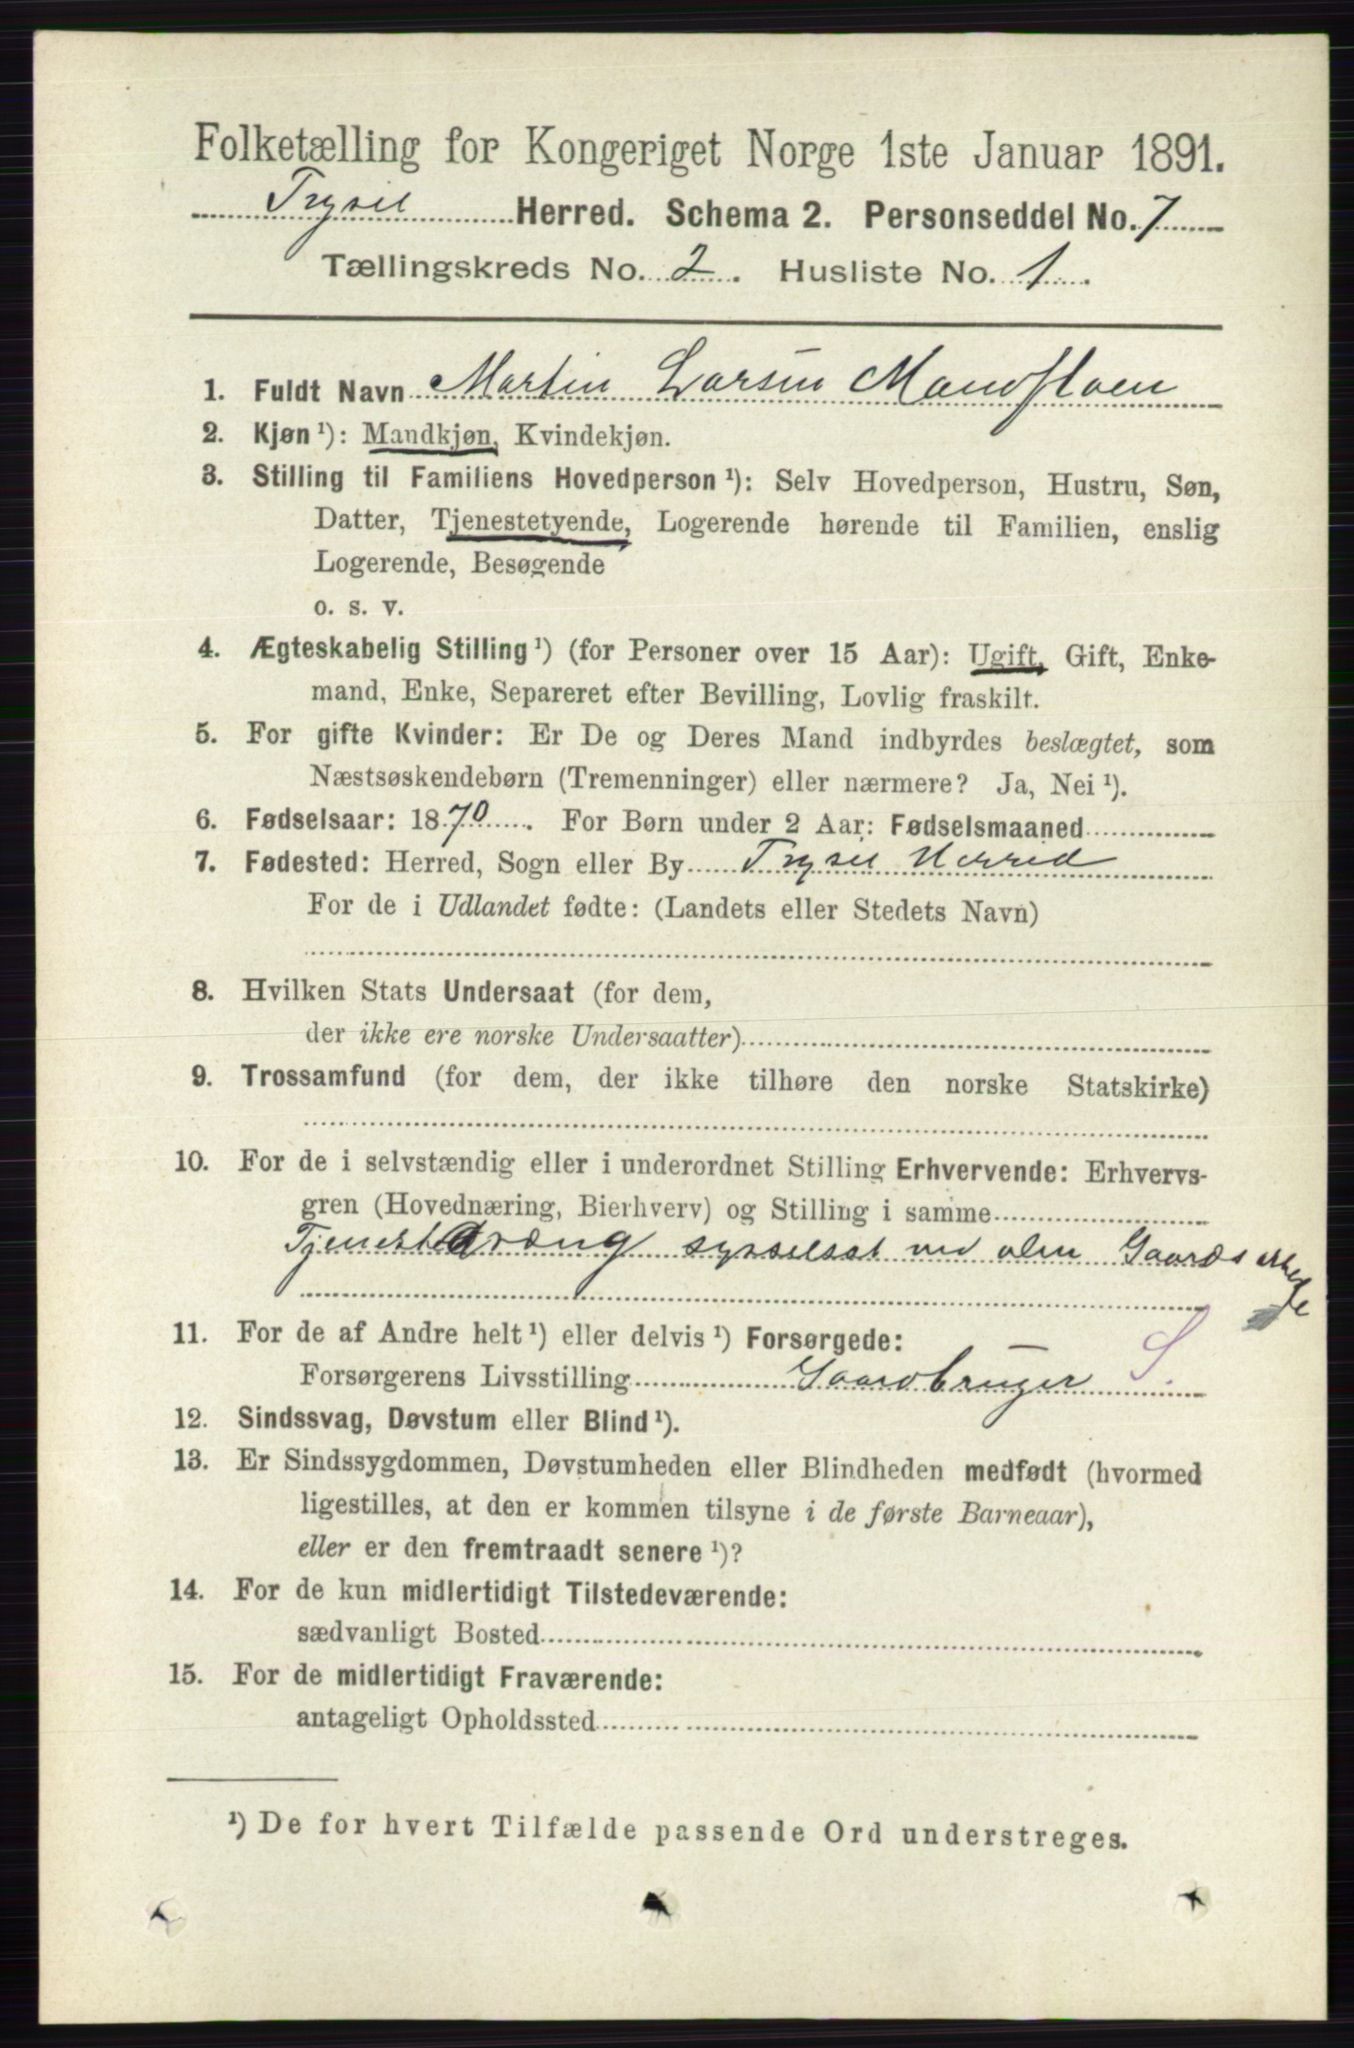 Folketælling for Kongeriget Norge 1ste Januar 1891.
Trysil Herred. Schema 2. Personseddel No. 7
Tællingskreds No. 2. Husliste No. 1.
1. Fuldt Navn Martin Larsen Mandfloen
2. Kjøn ¹): Mandkjøn, Kvindekjøn.
3. Stilling til Familiens Hovedperson ¹): Selv Hovedperson, Hustru, Søn,
Datter, Tjenestetyende, Logerende hørende til Familien, enslig
Logerende, Besøgende
o. s. v.
4. Ægteskabelig Stilling ¹) (for Personer over 15 Aar): Ugift, Gift, Enke-
mand, Enke, Separeret efter Bevilling, Lovlig fraskilt.
5. For gifte Kvinder: Er De og Deres Mand indbyrdes beslægtet, som
Næstsøskendebørn (Tremenninger) eller nærmere? Ja, Nei ¹).
6. Fødselsaar: 1870. For Børn under 2 Aar: Fødselsmaaned
7. Fødested: Herred, Sogn eller By Trysil Herred
For de i Udlandet fødte: (Landets eller Stedets Navn)
8. Hvilken Stats Undersaat (for dem,
der ikke ere norske Undersaatter)
9. Trossamfund (for dem, der ikke tilhøre den norske Statskirke)
10. For de i selvstændig eller i underordnet Stilling Erhvervende: Erhvervs-
gren (Hovednæring, Bierhverv) og Stilling i samme
Tjenestedræng sysselsat ved alm Gaardsarbeide
11. For de af Andre helt ¹) eller delvis ¹) Forsørgede:
Forsørgerens Livsstilling Gaardbruger S.
12. Sindssvag, Døvstum eller Blind ¹).
13. Er Sindssygdommen, Døvstumheden eller Blindheden medfødt (hvormed
ligestilles, at den er kommen tilsyne i de første Barneaar),
eller er den fremtraadt senere ¹)?
14. For de kun midlertidigt Tilstedeværende:
sædvanligt Bosted
15. For de midlertidigt Fraværende:
antageligt Opholdssted
¹) De for hvert Tilfælde passende Ord understreges.